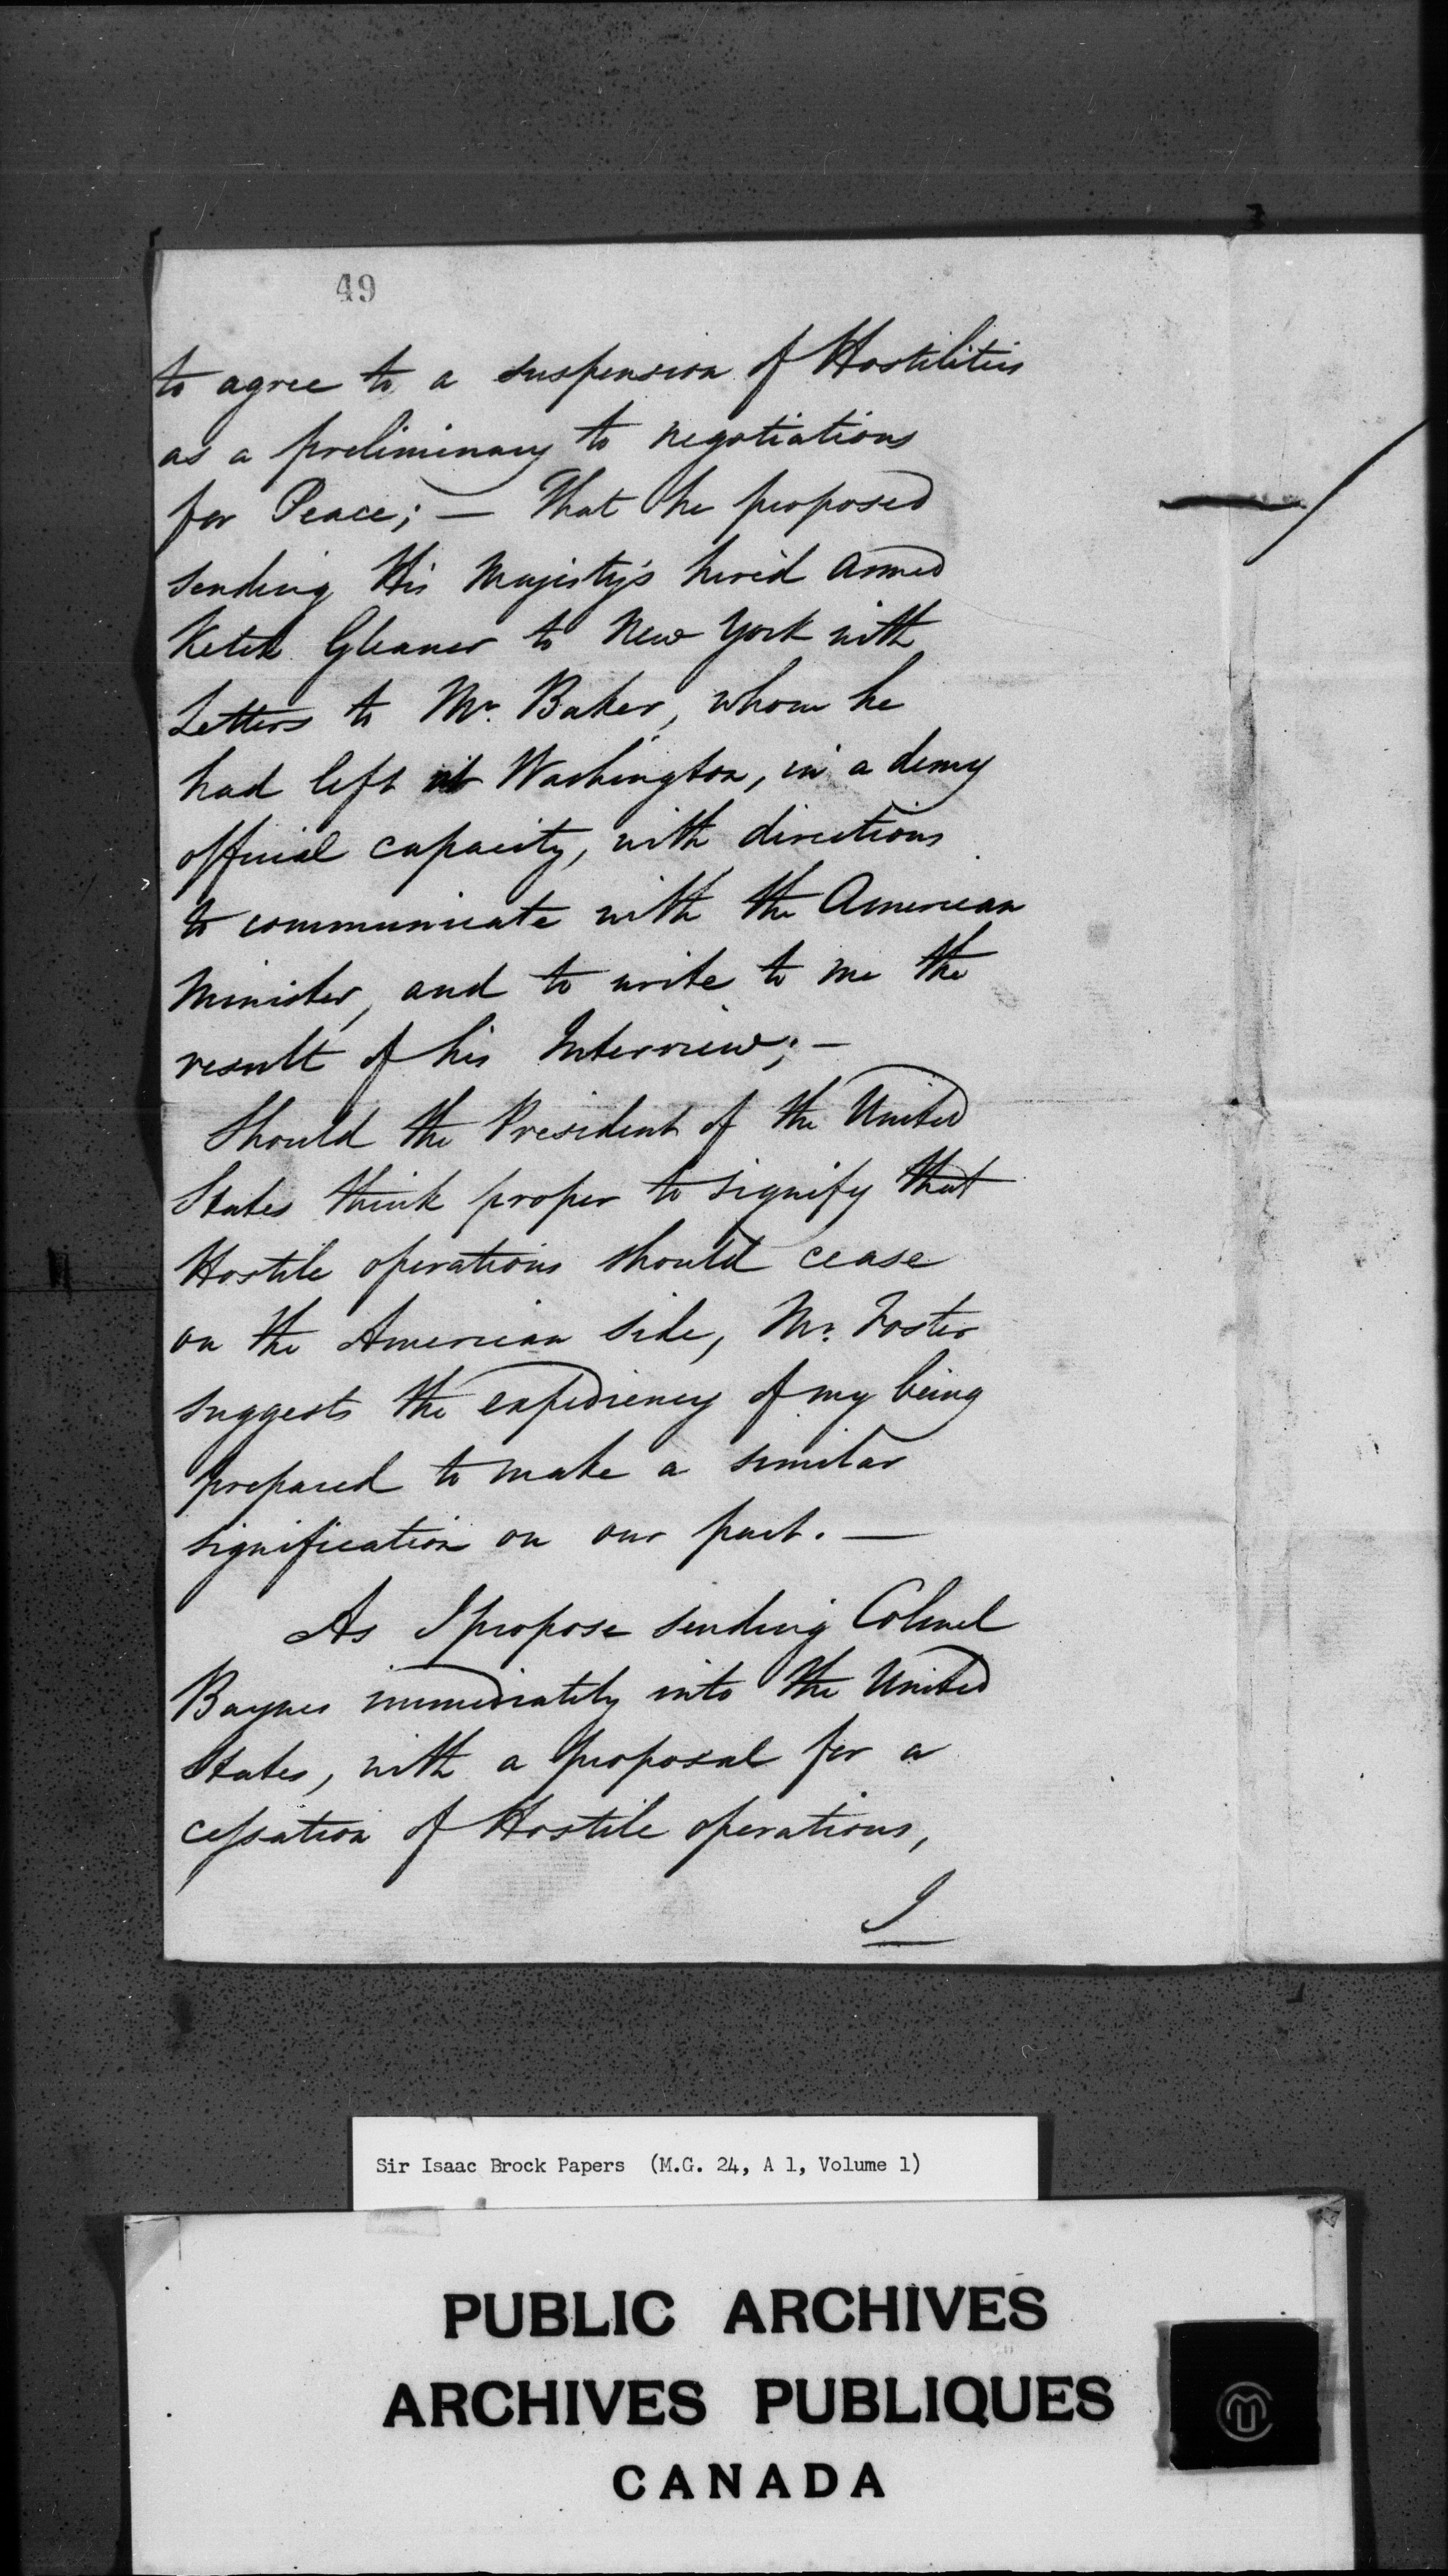 49
to agree to a suspension of Hostilities
as a preliminary to negotiations
for Peace; — That he proposed
sending His Majesty's hired armed
Ketch Gleaner to New York with
Letters to Mr. Baker, whom he
had left at Washington, in a demy
official capacity, with directions
to communicate with the American
Minister, and to write to me the
result of his Interview; —
Should the President of the United
States think proper to signify that
Hostile operations should cease
on the American side, Mr. Foster
suggests the expediency of my being
prepared to make a similar
signification on our part. —
As I propose sending Colonel
Baynes immediately into the United
States, with a proposal for a
cessation of Hostile operations,
I
Sir Isaac Brock Papers (M.G. 24, A 1, Volume 1)
PUBLIC ARCHIVES
ARCHIVES PUBLIQUES
CANADA